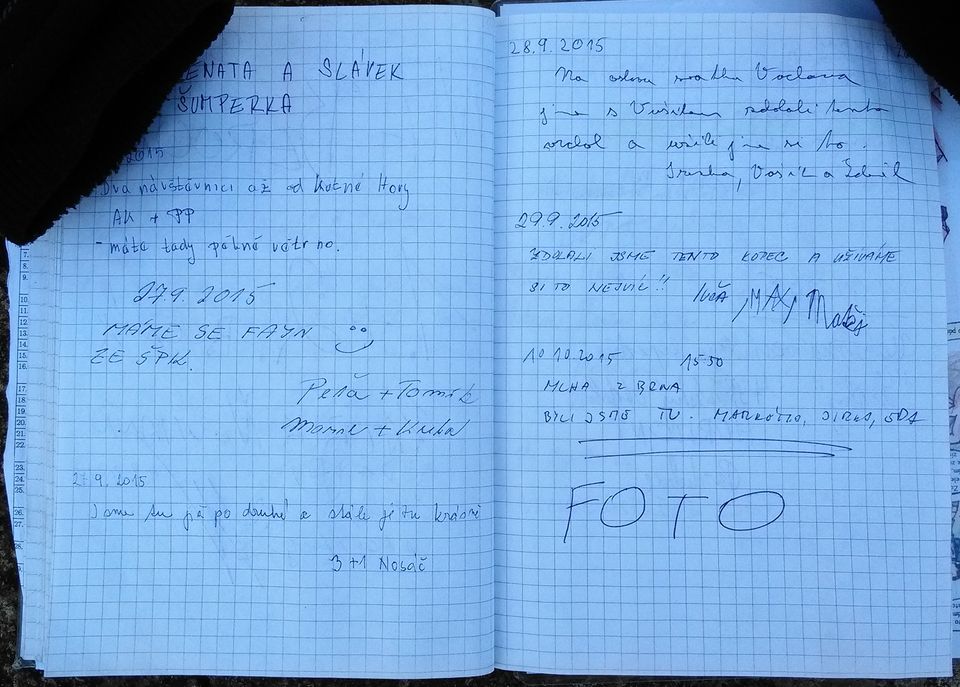 ENATA A SLÁVEK
ŠUMPERKA
2015
- Dva návštávníci až od Kutné Hory
AK + PP
- máta tady pěkně větrno.
27.9. 2015
MÁME SE FAJN
ZE ŠPIK.
Peťa + Tomík
27.9. 2015
Jsme tu již po druhé a stále je tu krásně
3+1 Nosáč
28.9. 2015
Na oslavu svátku Václava
jsme s Vašíkem zdolali tento
vrchol a užili jsme si to.
Vašík a Zdeněk
29.9. 2015
ZDOLALI JSME TENTO KOPEC A UŽÍVÁME
SI TO NEJVÍC!! IVČA, MAX, Matěj
10 10.2015 1550
MLHA Z BRNA
BYLI JSME TU. MARKÉTKA, JIRKA,
FOTO